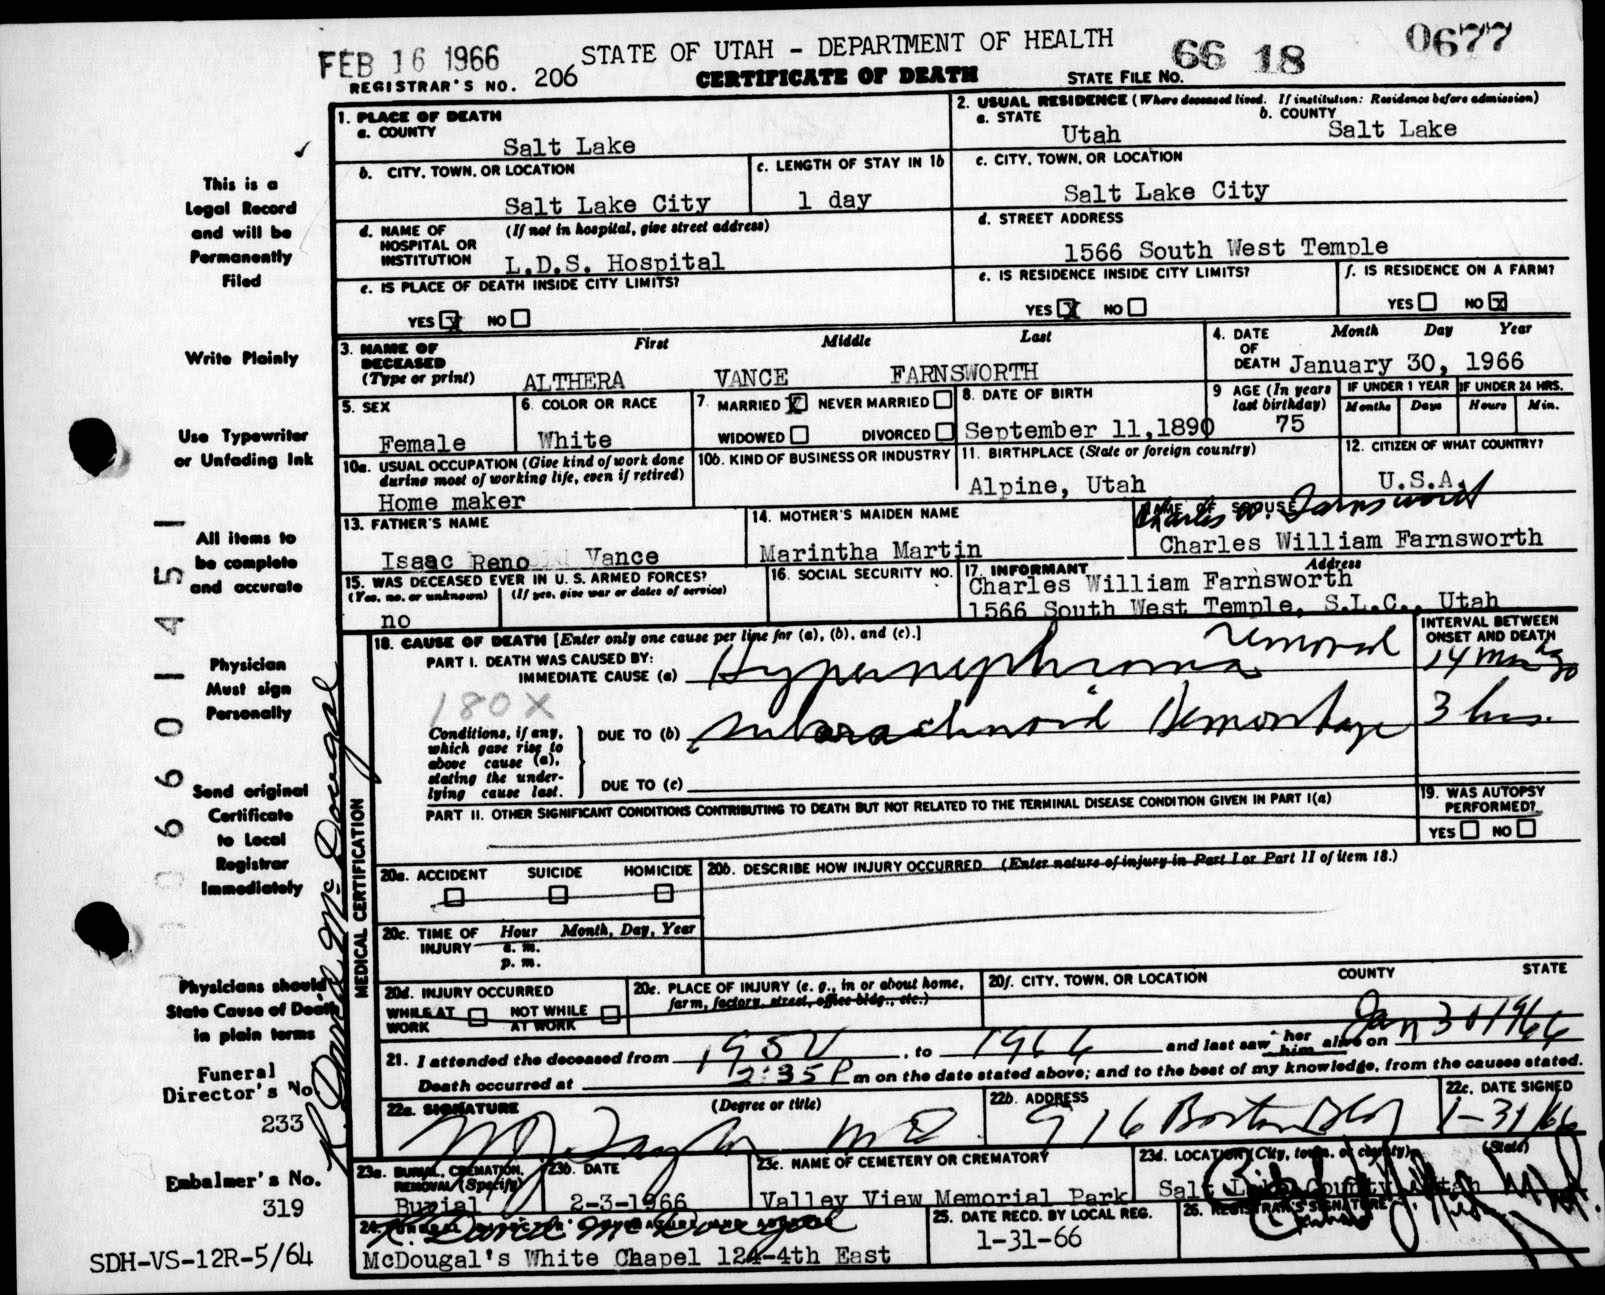 FEB 16 1966
STATE OF UTAH - DEPARTMENT OF HEALTH
66 18 0677
REGISTRAR'S NO. 206
CERTIFICATE OF DEATH
STATE FILE NO.
This is a
Legal Record
and will be
Permanently
Filed
Write Plainly
Use Typewriter
or Unfading Ink
All items to
be complete
and accurate
Physician
Must sign
Personally
Send original
Certificate
to Local
Registrar
Immediately
Physicians should
State Cause of Death
in plain terms
Funeral
Director's No.
233
Embalmer's No.
319
SDH-VS-12R-5/64
R. David McDougal
MEDICAL CERTIFICATION
1. PLACE OF DEATH
a. COUNTY
Salt Lake
b. CITY, TOWN, OR LOCATION
Salt Lake City
c. LENGTH OF STAY IN 1b
1 day
d. NAME OF HOSPITAL OR INSTITUTION
(If not in hospital, give street address)
L.D.S. Hospital
e. IS PLACE OF DEATH INSIDE CITY LIMITS?
YES X NO
2. USUAL RESIDENCE (Where deceased lived. If institution: Residence before admission)
a. STATE
Utah
b. COUNTY
Salt Lake
c. CITY, TOWN, OR LOCATION
Salt Lake City
d. STREET ADDRESS
1566 South West Temple
e. IS RESIDENCE INSIDE CITY LIMITS?
YES X NO
f. IS RESIDENCE ON A FARM?
YES NO X
3. NAME OF DECEASED
(Type or print)
First Middle Last
ALTHERA VANCE FARNSWORTH
4. DATE OF DEATH
Month Day Year
January 30, 1966
5. SEX
Female
6. COLOR OR RACE
White
7. MARRIED X NEVER MARRIED
WIDOWED DIVORCED
8. DATE OF BIRTH
September 11,1890
9 AGE (In years last birthday)
75
IF UNDER 1 YEAR IF UNDER 24 HRS.
Months Days Hours Min.
10a. USUAL OCCUPATION (Give kind of work done during most of working life, even if retired)
Home maker
10b. KIND OF BUSINESS OR INDUSTRY
11. BIRTHPLACE (State or foreign country)
Alpine, Utah
12. CITIZEN OF WHAT COUNTRY?
U.S.A.
13. FATHER'S NAME
Isaac Reno Vance
14. MOTHER'S MAIDEN NAME
Marintha Martin
NAME OF SPOUSE
Charles W. Farnsworth
Charles William Farnsworth
15. WAS DECEASED EVER IN U. S. ARMED FORCES?
(Yes, no, or unknown) (If yes, give war or dates of service)
no
16. SOCIAL SECURITY NO.
17. INFORMANT Address
Charles William Farnsworth
1566 South West Temple, S.L.C., Utah
18. CAUSE OF DEATH [Enter only one cause per line for (a), (b), and (c).]
INTERVAL BETWEEN ONSET AND DEATH
PART I. DEATH WAS CAUSED BY:
IMMEDIATE CAUSE (a) Hypernephroma removal
180X
Conditions, if any, which gave rise to above cause (a), stating the underlying cause last.
DUE TO (b) subarachnoid Hemorrhage 3 hrs.
DUE TO (c)
PART II. OTHER SIGNIFICANT CONDITIONS CONTRIBUTING TO DEATH BUT NOT RELATED TO THE TERMINAL DISEASE CONDITION GIVEN IN PART I(a)
19. WAS AUTOPSY PERFORMED?
YES NO
20a. ACCIDENT SUICIDE HOMICIDE
20b. DESCRIBE HOW INJURY OCCURRED (Enter nature of injury in Part I or Part II of item 18.)
20c. TIME OF INJURY
Hour Month, Day, Year
a. m.
p. m.
20d. INJURY OCCURRED
WHILE AT WORK NOT WHILE AT WORK
20e. PLACE OF INJURY (e. g., in or about home, farm, factory, street, office bldg., etc.)
20f. CITY, TOWN, OR LOCATION COUNTY STATE
21. I attended the deceased from 1952, to 1966 and last saw her him alive on Jan 30 1966
Death occurred at 2:35 P m on the date stated above; and to the best of my knowledge, from the causes stated.
22a. SIGNATURE (Degree or title)
Taylor MD
22b. ADDRESS
916 Boston Bldg
22c. DATE SIGNED
1-31-66
23a. BURIAL, CREMATION, REMOVAL (Specify)
Burial
23b. DATE
2-3-1966
23c. NAME OF CEMETERY OR CREMATORY
Valley View Memorial Park
23d. LOCATION (City, town, or county) (State)
Salt Lake County, Utah
24. FUNERAL DIRECTOR'S SIGNATURE AND ADDRESS
R. David McDougal
McDougal's White Chapel 124-4th East
25. DATE RECD. BY LOCAL REG.
1-31-66
26. REGISTRAR'S SIGNATURE